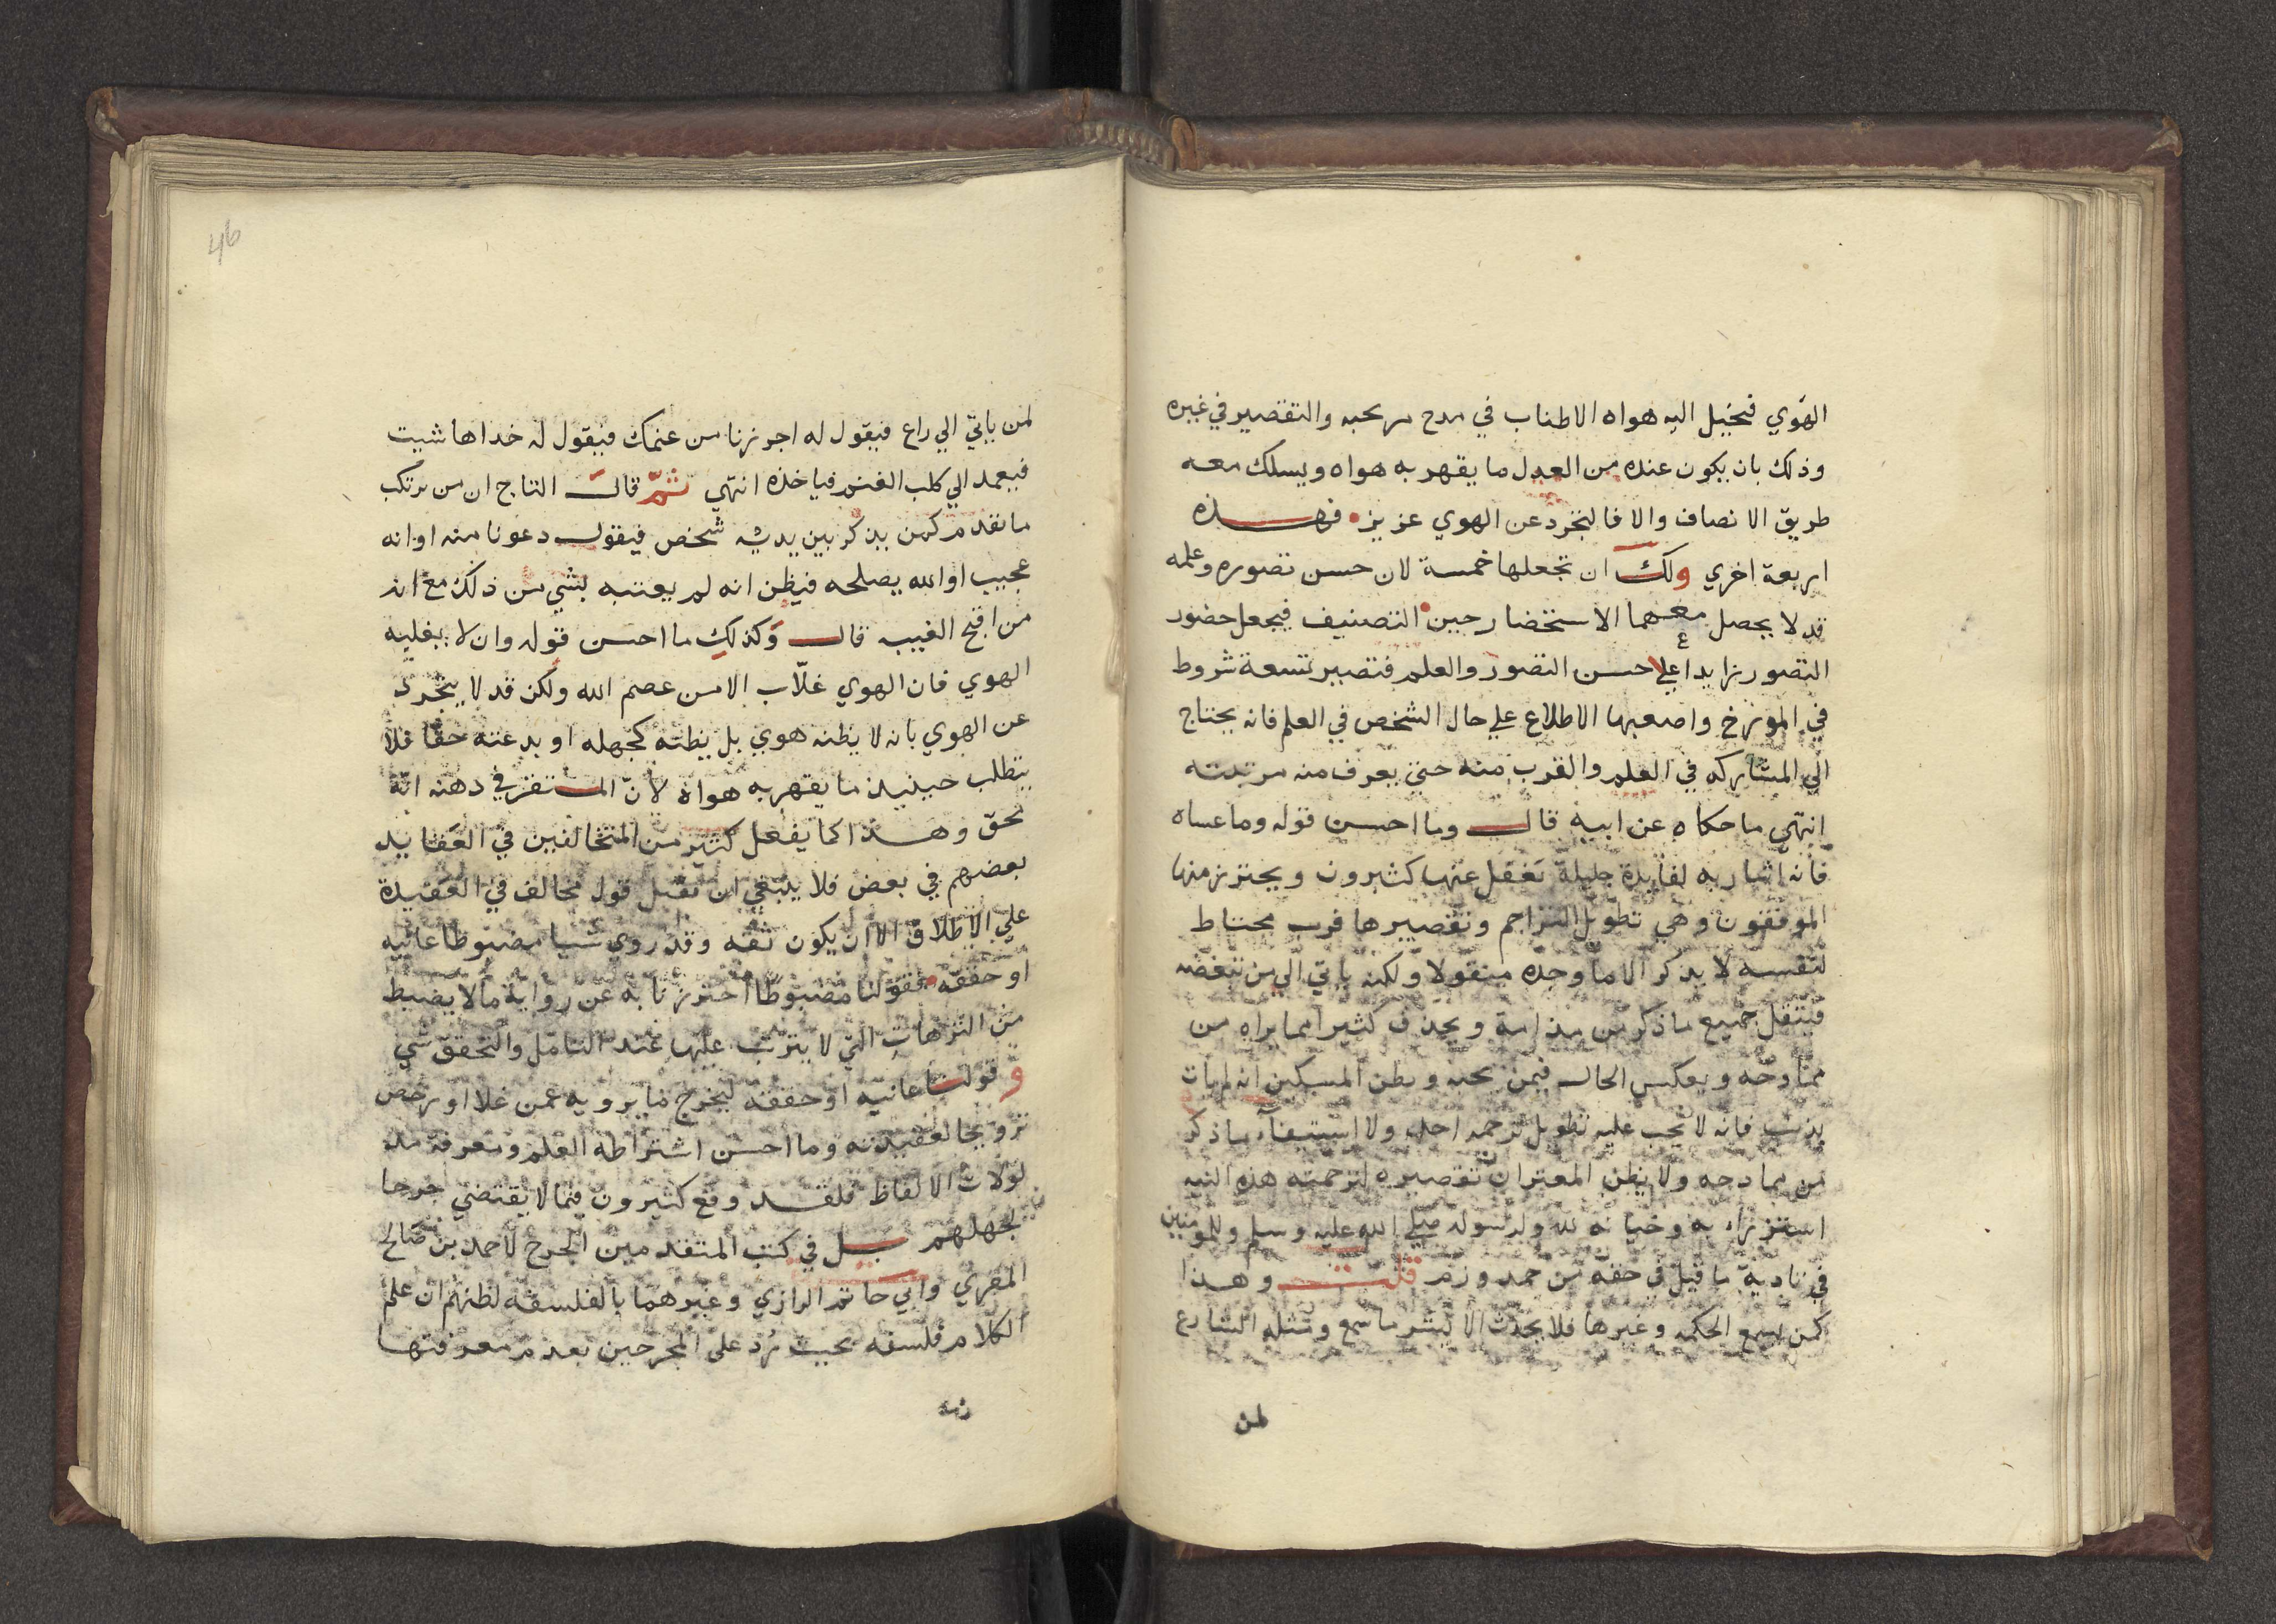 الهوي فيخيل اليه هواه الاطناب في مدح من يحبه والتقصير في غيره
وذلك بان يكون عنده من العدل ما يقهر به هواه ويسلك معه
طريق الانصاف والا فالتجرد عن الهوي عزيز فهذه
اربعة اخري ولك ان تجعلها خمسة لان حسن تصوره وعلمه
قد لا يحصل معهما الاستحضار حين التصنيف فيجعل حضور
التصور زايدا علي حسن التصور والعلم فتصير تسعة شروط
في المورخ واصعبها الاطلاع علي حال الشخص في العلم فانه يحتاج
الي المشاركه في العلم والقرب منه حتي يعرف مرتبته
انتهي ما حكاه عن ابيه قال وما احسن قوله وما عساه
فانه اشار به لفايدة جليلة تغفل عنها كثيرون ويحترز منها
الموفقون وهي تطويل التراجم وتقصيرها فرب محتاط
لنفسه لا يذكر الا ما وجده منقولا ولكنه ياتي الي من يبغضه
فينقل جميع ما ذكر من مذامه ويحذف كثيرا مما يراه من
ممادحه ويعكس الحال فيمن يحبه ويظن المسكين انه لم يات
بذنب فانه لا يجب عليه تطويل ترجمه احد ولا استيفاء ما ذكر
من ممادحه ولا يظن المعتر ان تقصيره لترجمته هذه النيه
استزراء به وخيانه لله ولرسوله صلي الله عليه وسلم وللمومنين
في تادية ما قيل في حقه من حمد وذم قلت وهذا
كمن يسمع الحكمه وغيرها فلا يحدث الا بشر ما سمع ومثله الشارع
لمن
46
لمن ياتي الي راع فيقول له اجزرنا من غنمك فيقول له خذ اها شيت
فيعمد الي كلب الغنم فياخذه انتهي ثم قال التاج ان من يرتكب
ما تقدم كمن يذكر بين يديه شخص فيقول دعونا منه او انه
عجيب او الله يصلحه فيظن انه لم يعتبه بشي من ذلك مع انه
من اقبح الغيبه قال وكذلك ما احسن قوله وان لا يغلبه
الهوي فان الهوي غلاب الا من عصم الله ولكن قد لا يتجرد
عن الهوي بانه لا يظنه هوي بل يظنه كجهله او بدعته حقا فلا
يتطلب حينيذ ما يقهر به هواه لان المستقر في دهنه انه
محق وهذا كما يفعل كثير من المتخالفين في العقايد
بعضهم في بعض فلا ينبغي ان يقبل قول مخالف في العقيدة
علي الاطلاق الا ان يكون ثقه وقد روي شيا مضبوطا عاينه
او حققه فقولنا مضبوطا احترزنا به عن رواية ما لا يضبط
من الترهات التي لا يترتب عليها عند التامل والتحقق شي
وقولنا عاينه او حققه ليخرج ما يرويه عمن غلا او رخص
ترويجا لعقيدته وما احسن اشتراطه العلم ومعرفة مد
لولات الالفاظ فلقد وقع كثيرون فيما لا يقتضي جرحا
لجهلهم بل في كتب المتقدمين الجرح لاحمد بن صالح
المصري وابي حاتم الرازي وغيرهما بالفلسفه لظنهم ان علم
الكلام فلسفه بحيث رد علي المجرحين بعدم معرفتها